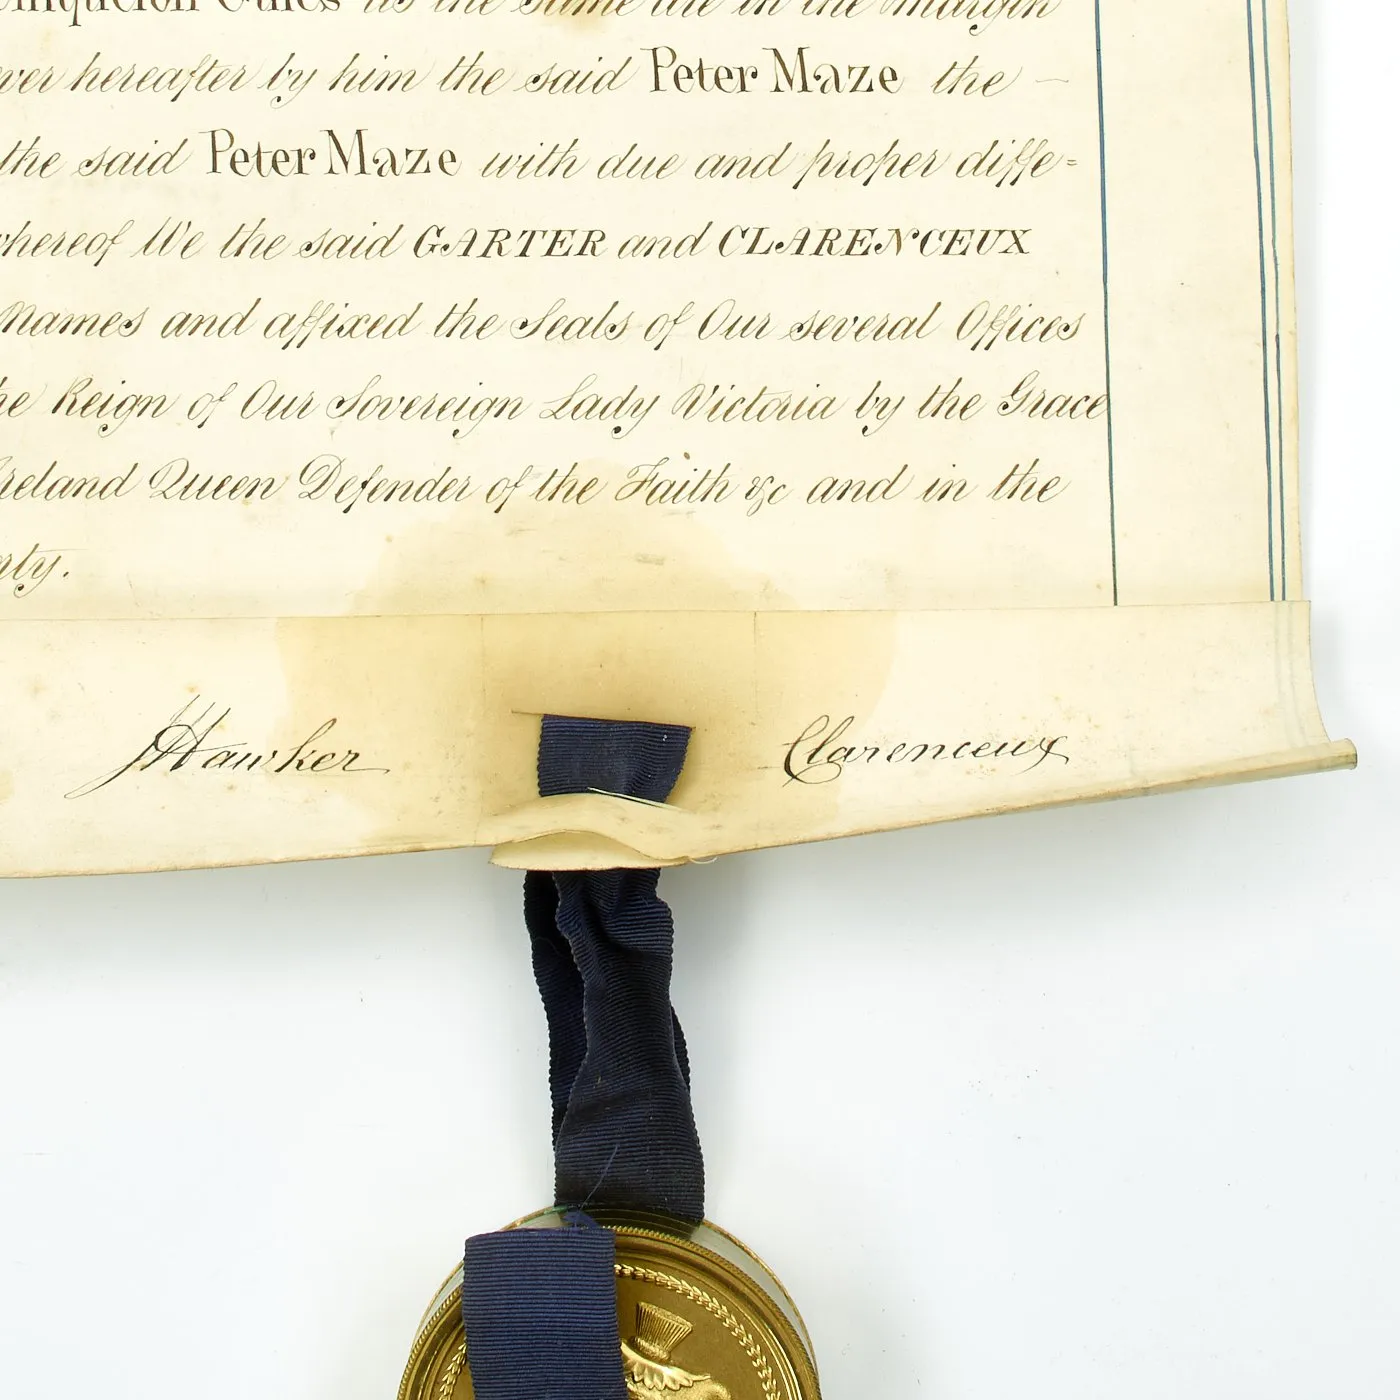 Gules as the same are in the margin
hereafter by him the said Peter Maze the —
the said Peter Maze with due and proper diffe=
whereof We the said GARTER and CLARENCEUX
Names and affixed the Seals of Our several Offices
Reign of Our Sovereign Lady Victoria by the Grace
Ireland Queen Defender of the Faith &c and in the
rty.
JHawker
Clarenceux